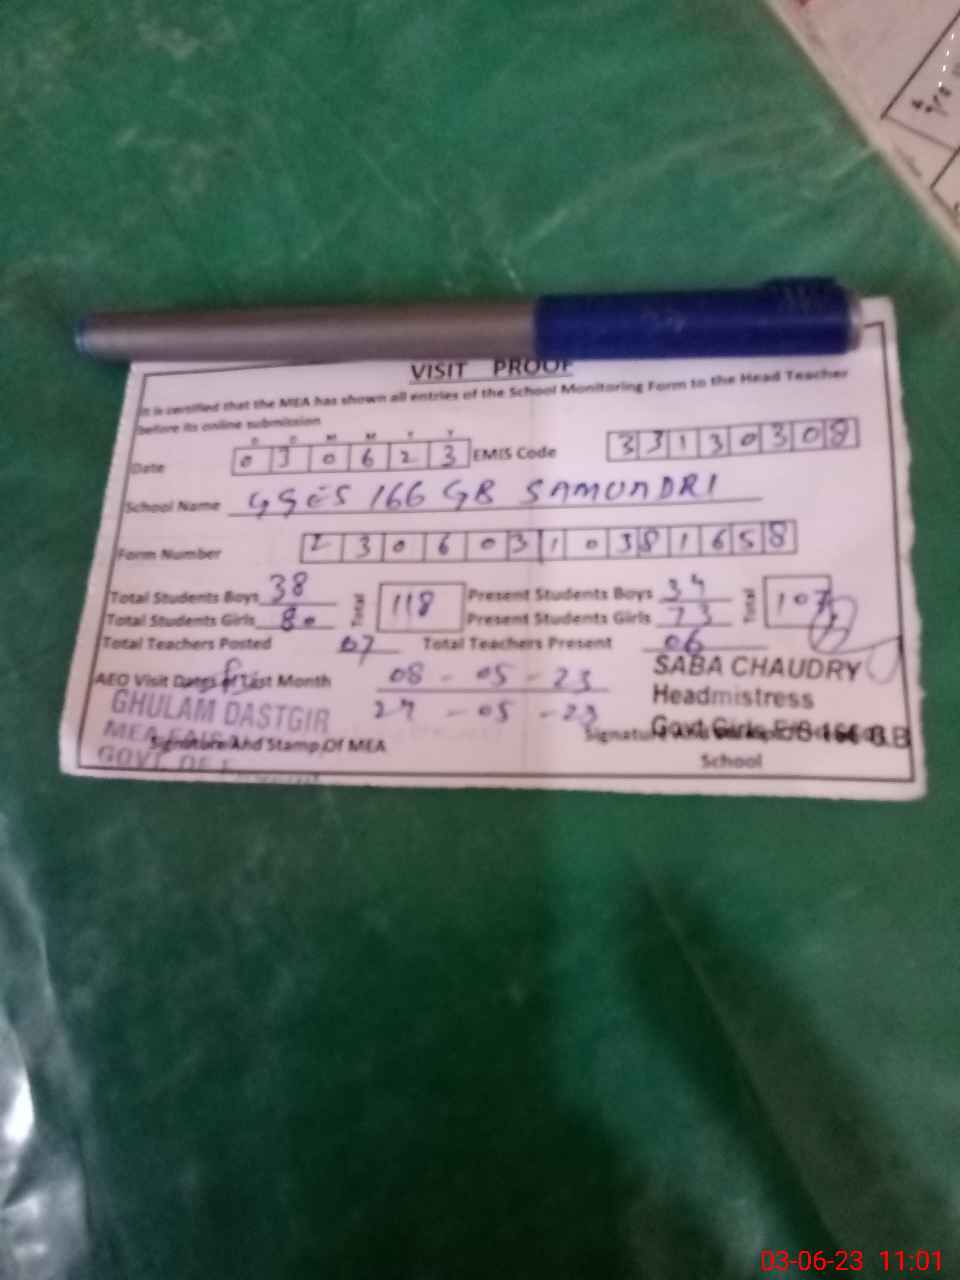 VISIT PROOF
It is certified that the MEA has shown all entries of the School Monitoring Form to the Head Teacher
before its online submission
D D M M Y Y
Date 0 3 0 6 2 3 EMIS Code 3 3 1 3 0 3 0 8
School Name GGES 166 GB SAMUNDRI
Form Number 2 3 0 6 0 3 1 0 3 8 1 6 5 8
Total Students Boys 38 Total 118 Present Students Boys 34 Total 107
Total Students Girls 80 Present Students Girls 73
Total Teachers Posted 07 Total Teachers Present 06
AEO Visit Dates of Last Month 08 - 05 - 23
27 - 05 - 23
GHULAM DASTGIR
MEA
GOVT
Signature And Stamp Of MEA
SABA CHAUDRY
Headmistress
Govt Girls E/S 166 G.B
School
03-06-23 11:01